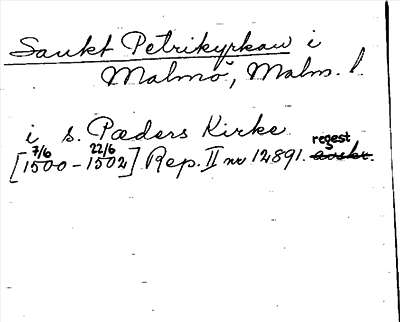 Sankt Petrikyrkan i
Malmö, Malm. l.
i s. Pæders Kirke
[7/6 1500 - 22/6 1502] Rep. II nr 12891. regest avskr.